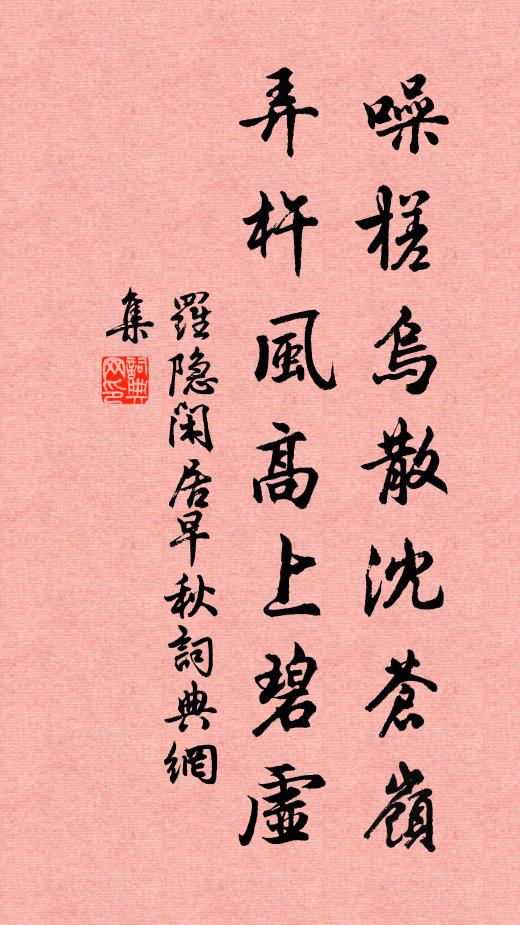 噪槎烏散沈蒼嶺
弄杵風高上碧虛
羅隐閑居早秋詞典網
集
詞典
网印